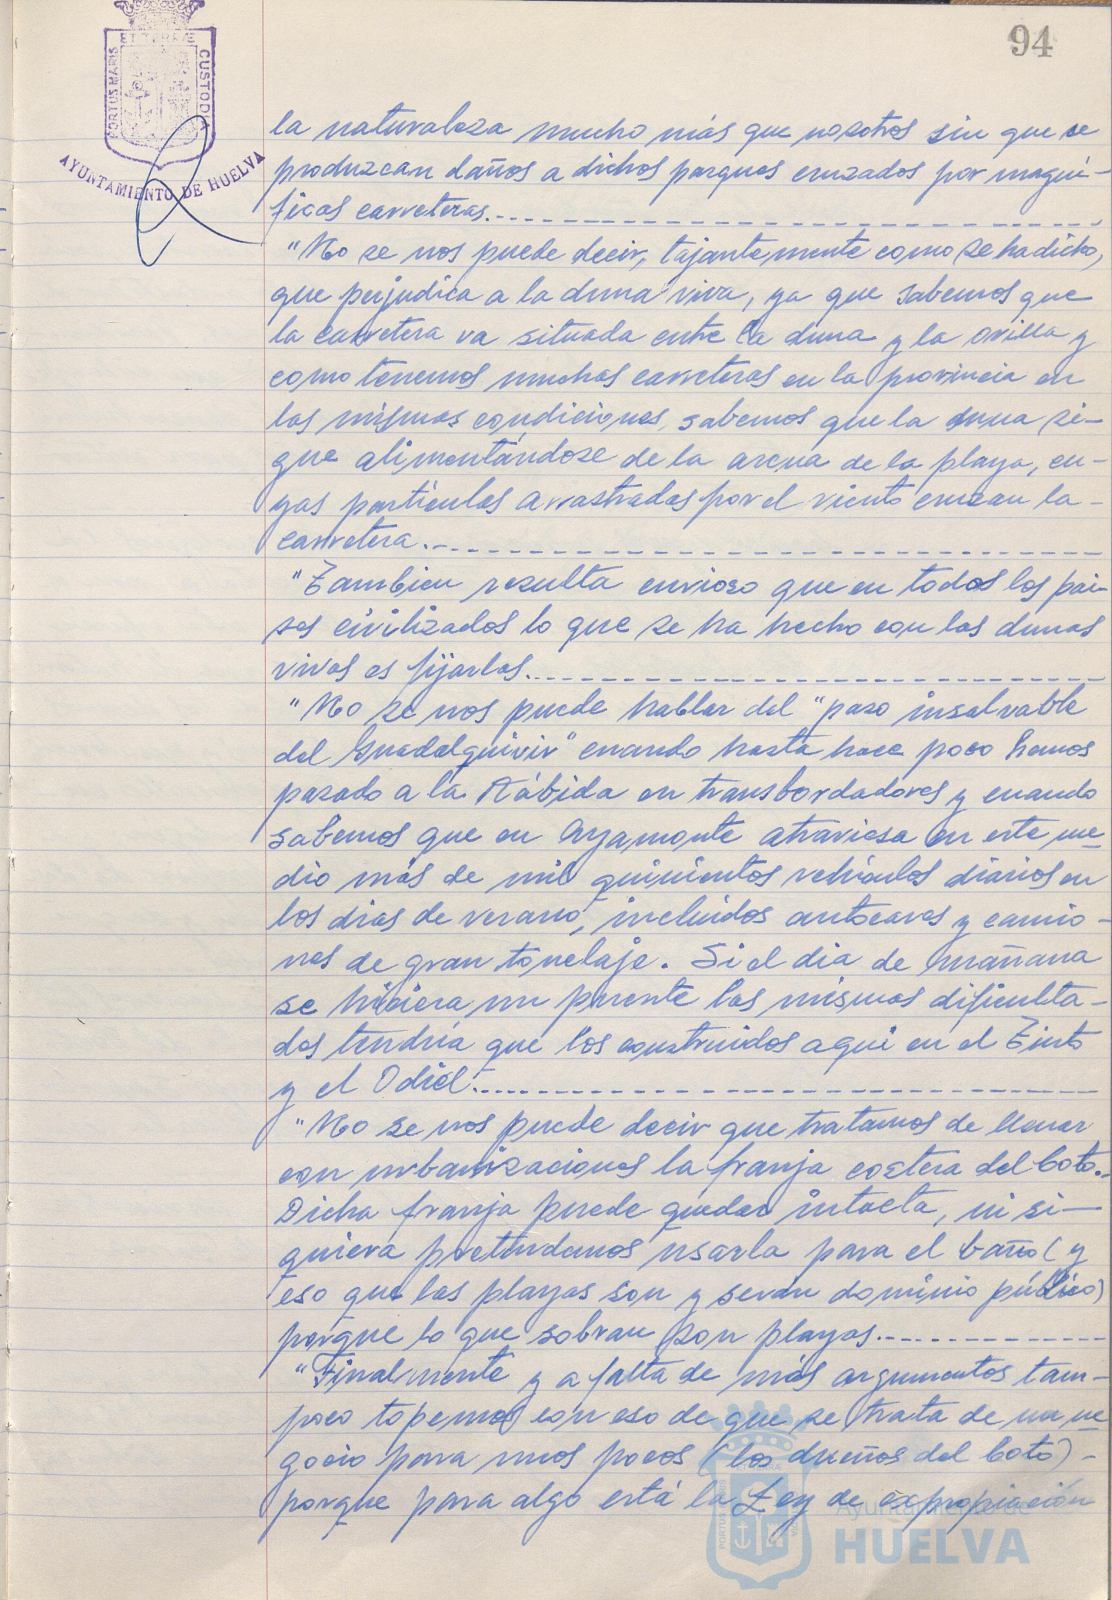 94
PORTUS MARIS ET TERRÆ CUSTODIA
AYUNTAMIENTO DE HUELVA
la naturaleza mucho más que nosotros sin que se
produzcan daños a dichos parques cruzados por magní-
ficas carreteras.
"No se nos puede decir, tajantemente como se ha dicho,
que perjudica a la duna viva, ya que sabemos que
la carretera va situada entre la duna y la orilla y
como tenemos muchas carreteras en la provincia en
las mismas condiciones, sabemos que la duna si-
gue alimentándose de la arena de la playa, cu-
yas partículas arrastradas por el viento cruzan la
carretera.
"Tambien resulta curioso que en todos los pai-
ses civilizados lo que se ha hecho con las dunas
vivas es fijarlas.
"No se nos puede hablar del "paso insalvable
del Guadalquivir" cuando hasta hace poco hemos
pasado a la Rábida en transbordadores y cuando
sabemos que en Ayamonte atraviesa en este me
dio más de mil quinientos vehículos diarios en
los dias de verano, incluidos autocares y camio-
nes de gran tonelaje. Si el dia de mañana
se hiciera un puente las mismas dificulta-
des tendría que los construidos aquí en el Tinto
y el Odiel.
"No se nos puede decir que tratamos de llenar
con urbanizaciones la franja costera del Coto.
Dicha franja puede quedar intacta, ni si-
quiera pretendemos usarla para el baño (y
eso que las playas son y serán dominio público)
porque lo que sobran son playas.
"Finalmente y a falta de más argumentos tam-
poco topemos con eso de que se trata de un ne
gocio para unos pocos (los dueños del Coto) -
porque para algo está la Ley de expropiación
Ayuntamiento de
HUELVA